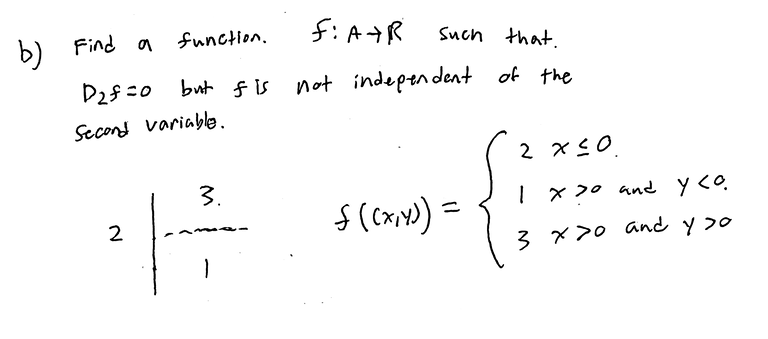 b) Find a function. f: A→R such that.
D₂f=0 but f is not independent of the
Second variable.
2 x≤0.
3.
f((x,y)) = { 1 x>0 and y<0.
2
3 x>0 and y>0
1